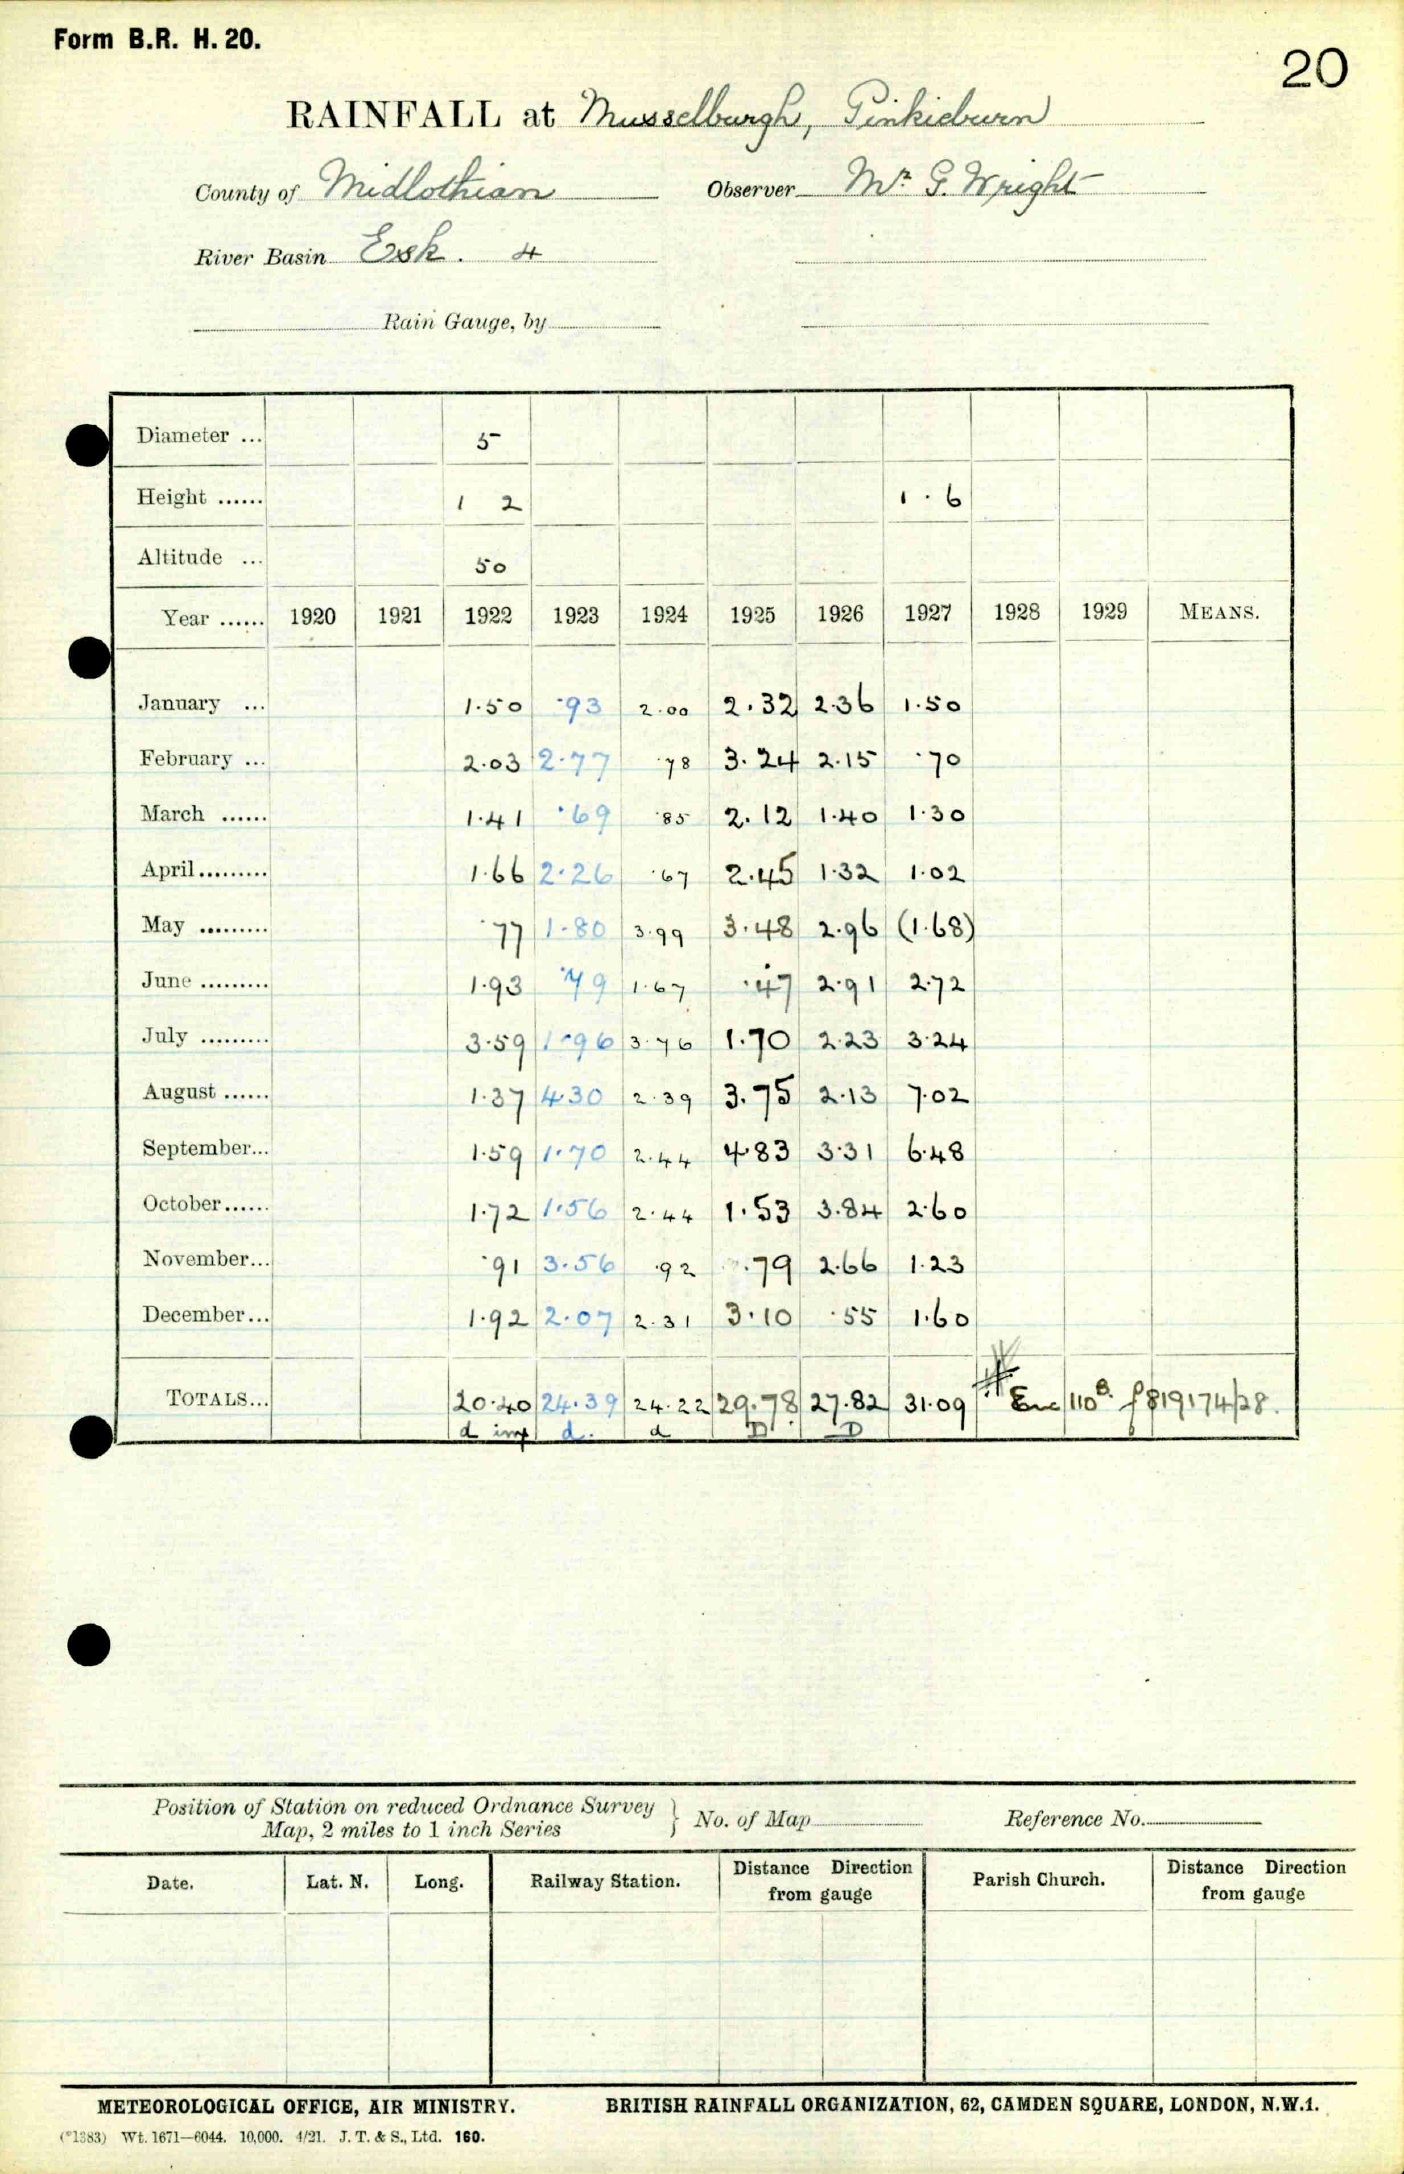 Form B.R. H. 20.
20
RAINFALL at Musselburgh, Pinkieburn
County of Midlothian Observer Mr. G. Wright
River Basin Esk. 4
Rain Gauge, by
Diameter ... 5
Height ...... 1 2 1.6
Altitude ... 50
Year ...... 1920 1921 1922 1923 1924 1925 1926 1927 1928 1929 MEANS.
January ... 1.50 .93 2.00 2.32 2.36 1.50
February ... 2.03 2.77 .78 3.24 2.15 .70
March ...... 1.41 .69 .85 2.12 1.40 1.30
April ......... 1.66 2.26 .67 2.45 1.32 1.02
May ......... .77 1.80 3.99 3.48 2.96 (1.68)
June ......... 1.93 .79 1.67 .47 2.91 2.72
July ......... 3.59 1.96 3.76 1.70 2.23 3.24
August ...... 1.37 4.30 2.39 3.75 2.13 7.02
September... 1.59 1.70 2.44 4.83 3.31 6.48
October...... 1.72 1.56 2.44 1.53 3.84 2.60
November... .91 3.56 .92 .79 2.66 1.23
December... 1.92 2.07 2.31 3.10 .55 1.60
TOTALS... 20.40 24.39 24.22 29.78 27.82 31.09 # 110 819174/28.
d imp d. d D D
Position of Station on reduced Ordnance Survey
Map, 2 miles to 1 inch Series } No. of Map Reference No.
Date. Lat. N. Long. Railway Station. Distance Direction from gauge Parish Church. Distance Direction from gauge
METEOROLOGICAL OFFICE, AIR MINISTRY. BRITISH RAINFALL ORGANIZATION, 62, CAMDEN SQUARE, LONDON, N.W.1.
(*1383) Wt. 1671—6044. 10,000. 4/21. J. T. & S., Ltd. 160.